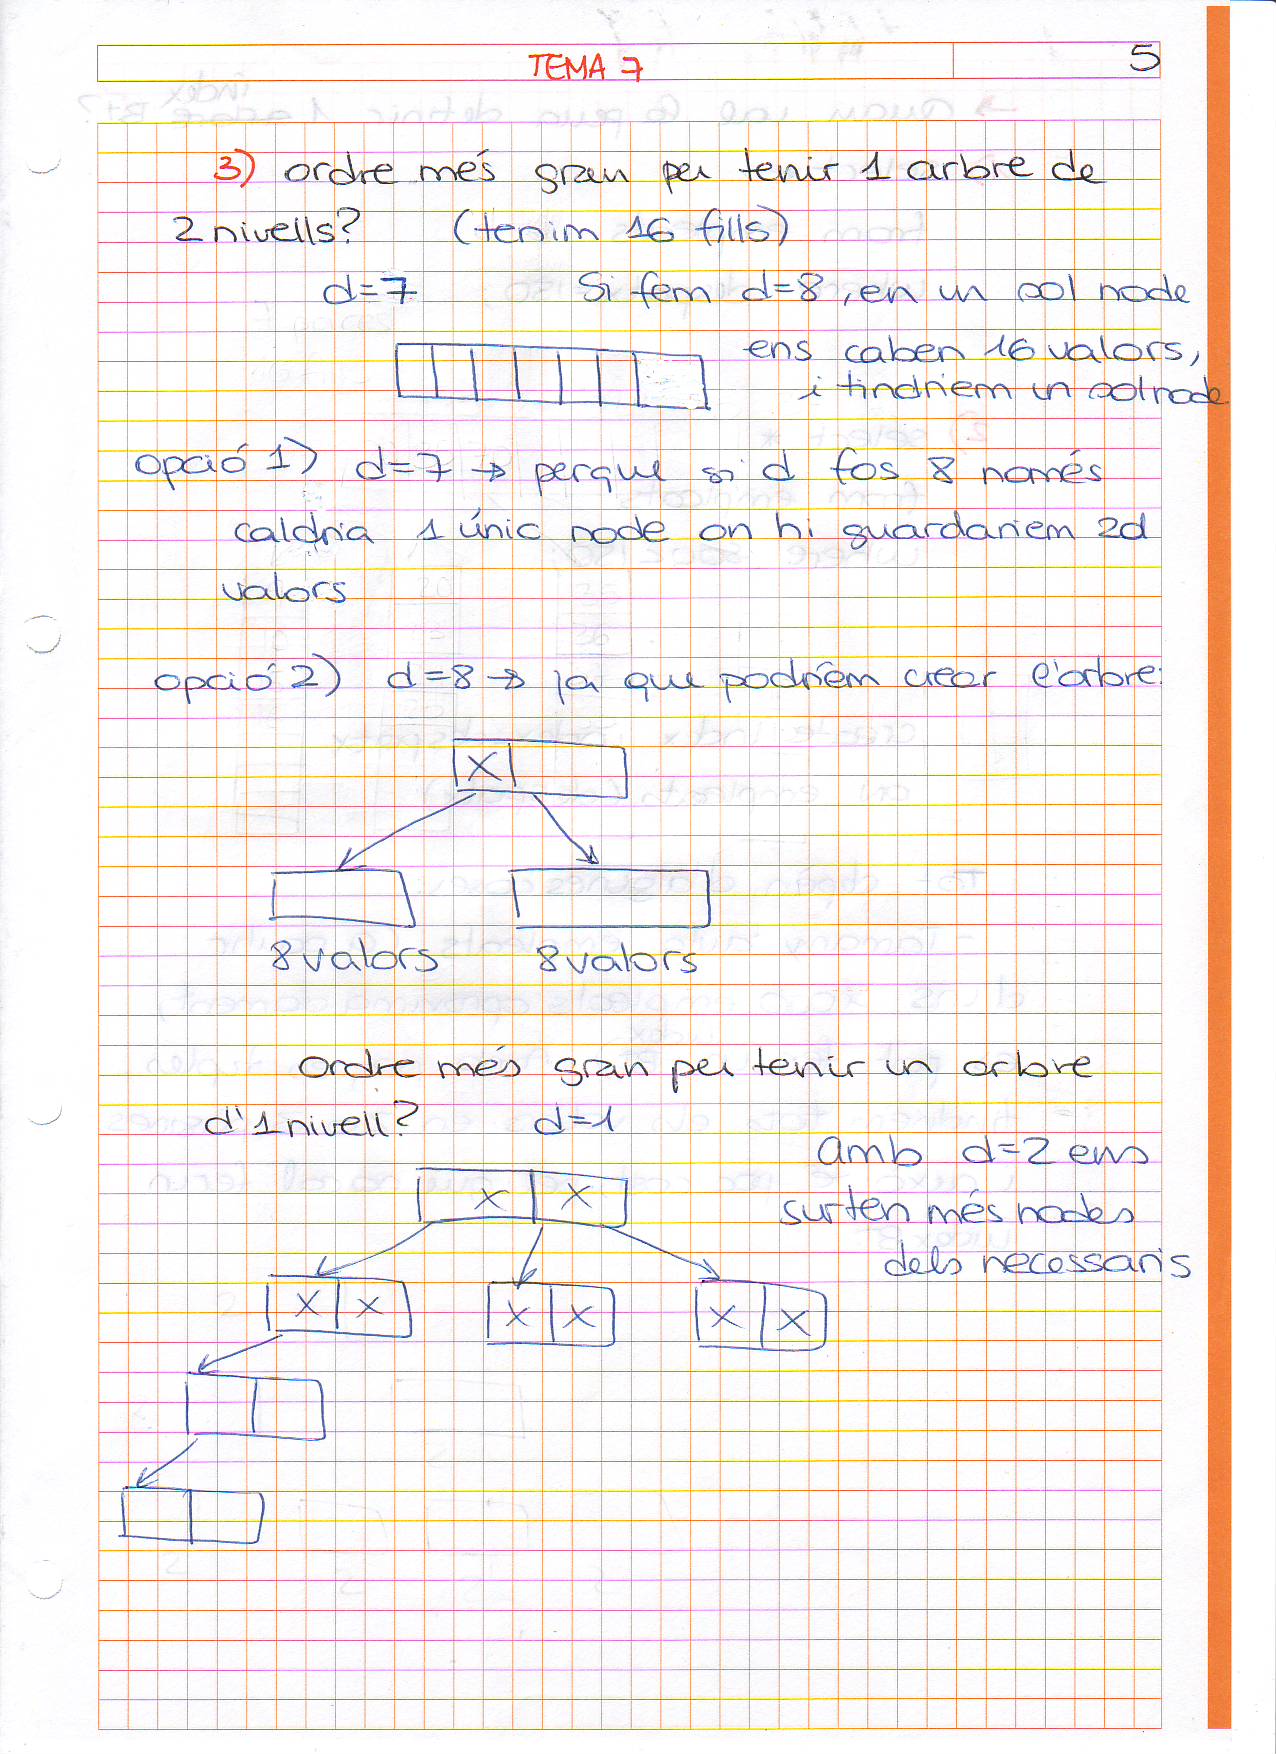 TEMA 7
5
3) ordre més gran per tenir 1 arbre de
2 nivells? (tenim 16 fills)
d=7 Si fem d=8, en un sol node
ens caben 16 valors,
i tindriem un sol node
opció 1) d=7 → perque si d fos 8 només
caldria 1 únic node on hi guardariem 2d
valors
opció 2) d=8 → ja que podriem crear l'arbre:
X
8 valors 8 valors
ordre més gran per tenir un arbre
d'1 nivell? d=1
amb d=2 ens
surten més nodes
dels necessaris
X X
X X X X X X